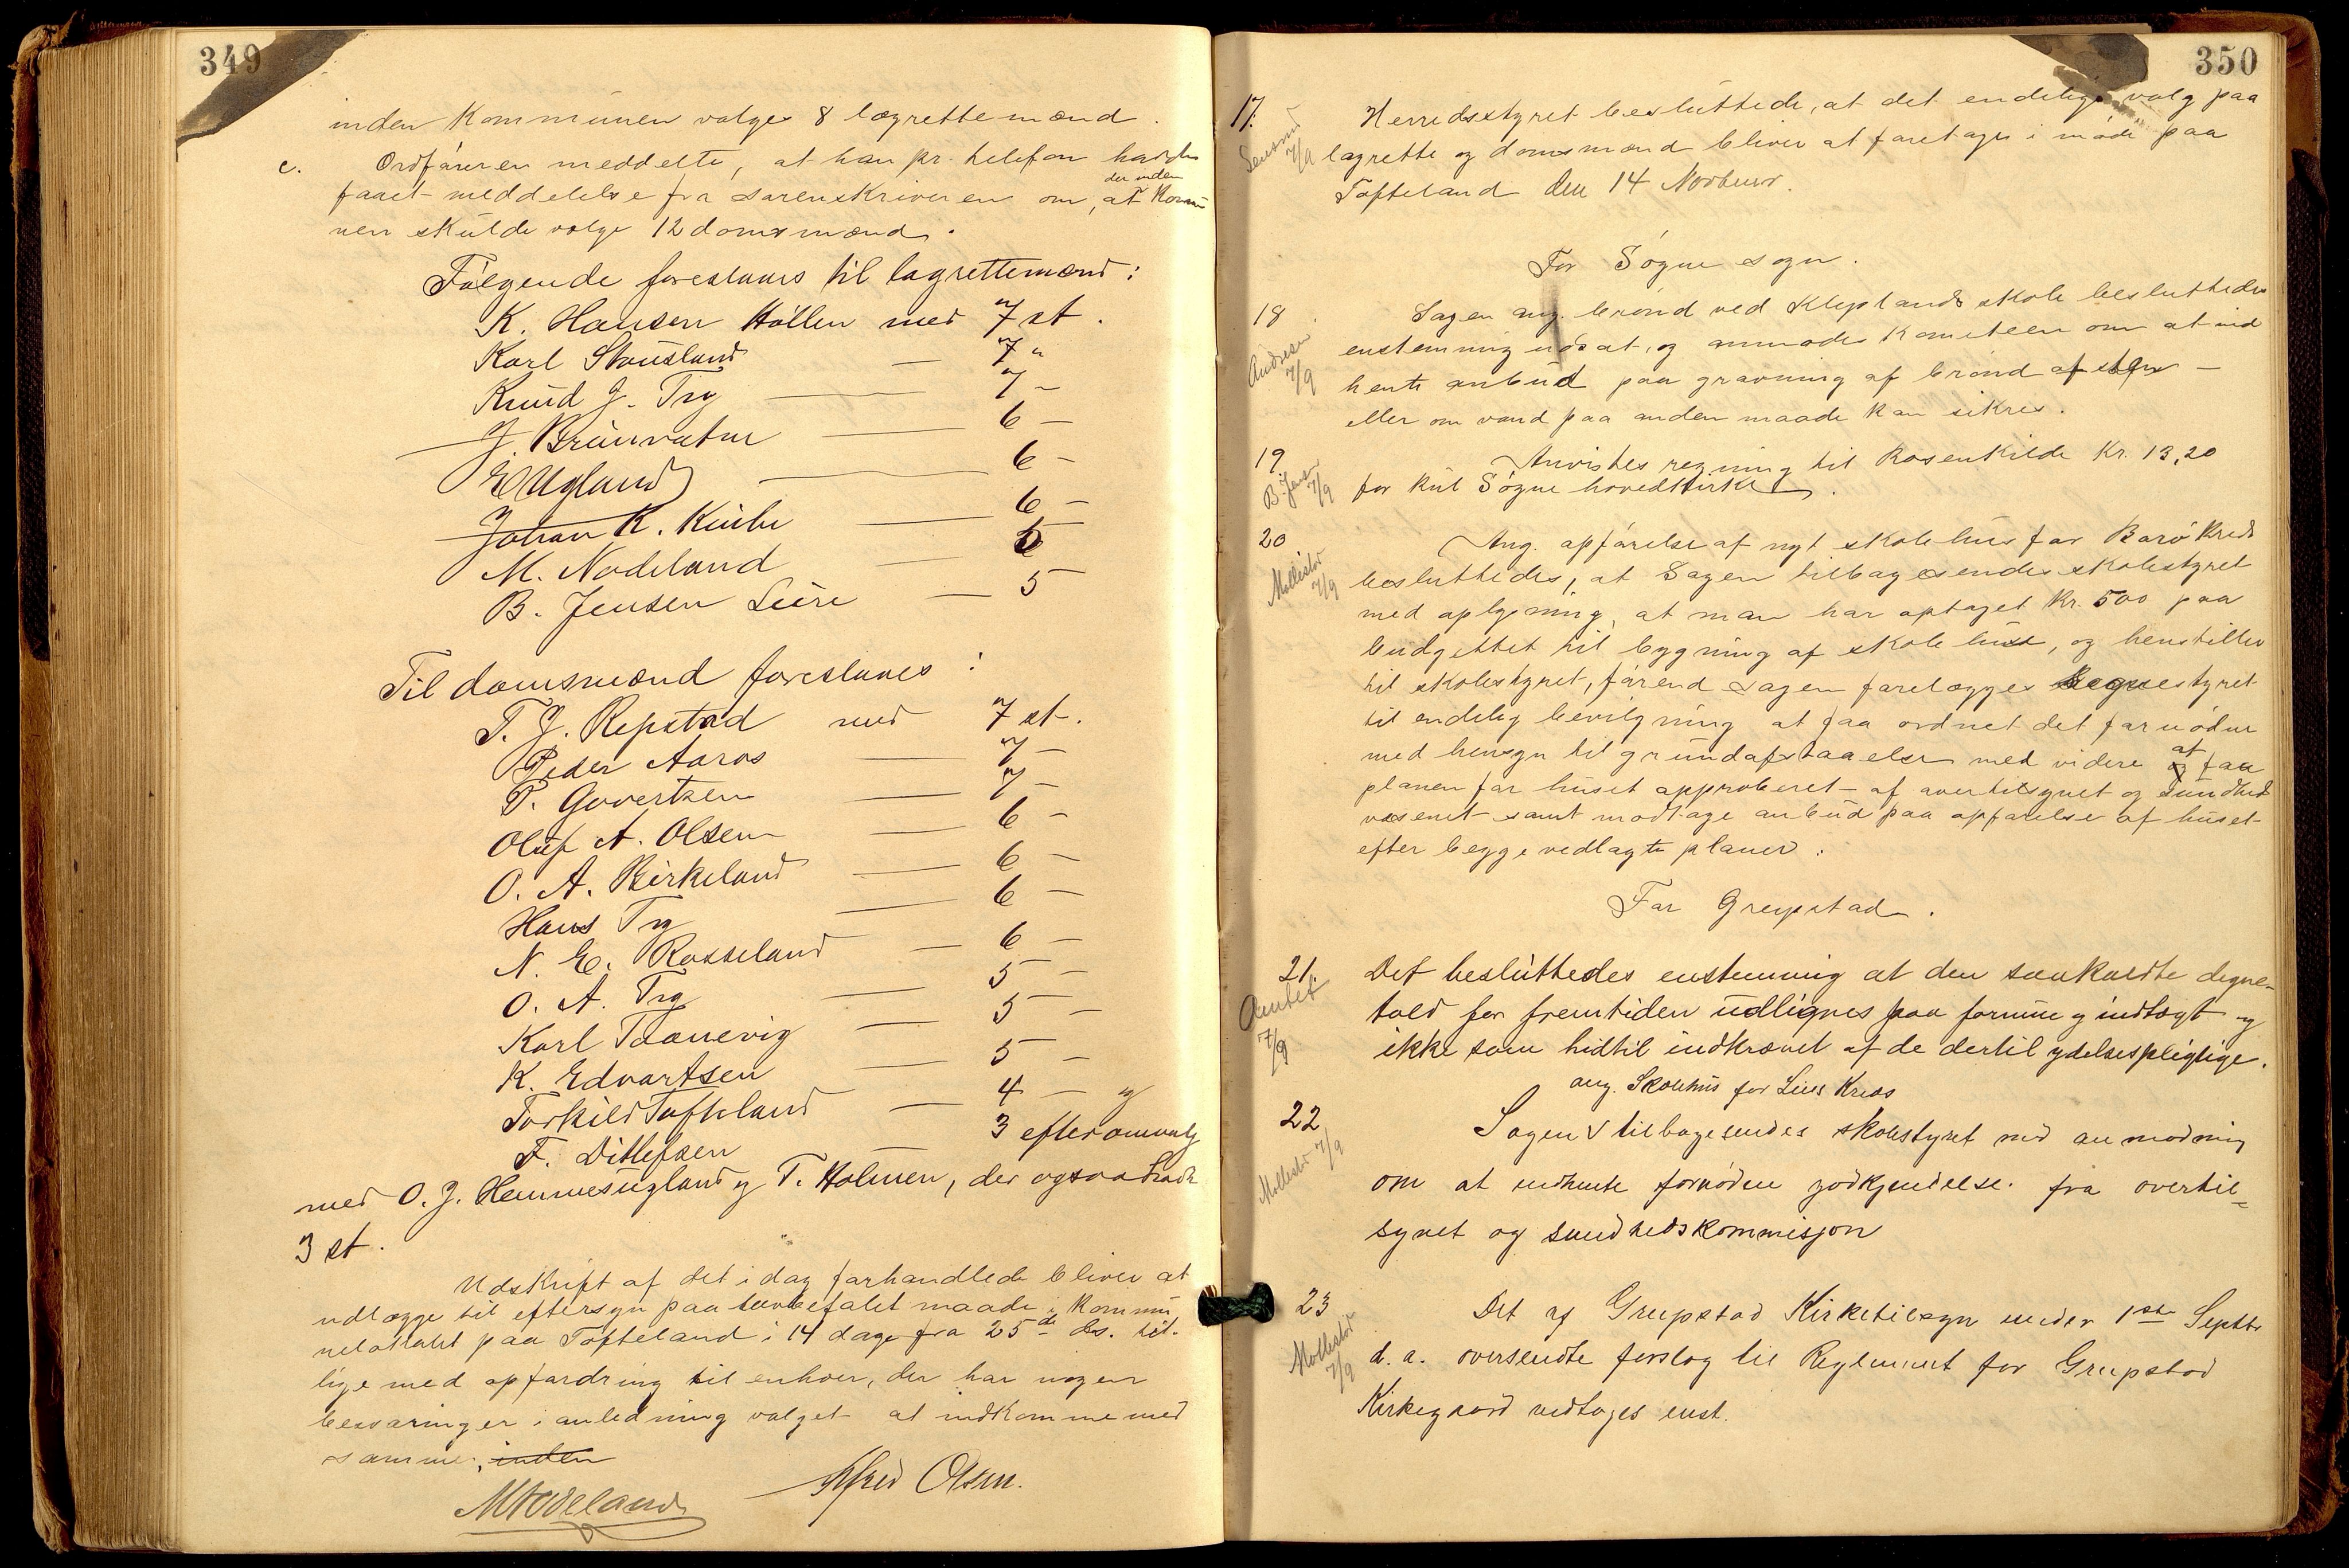 349
inden Kommunen valges 8 lagrettemænd.
c. Ordføreren meddelte, at han pr. telefon havde
faaet meddelelse fra sorenskriveren om, at der inden Kommu
nen skulde valges 12 domsmænd.
Følgende foreslaaes til lagrettemænd:
K. Hansen Høllen med 7 st.
Karl Stousland — 7 "
Knud J. Try — 7 -
J. Brunvatne — 6 -
E Ugland — 6 -
Johan K. Kinbe — 6 -
M. Nodeland — 5
B. Jensen Leire — 5
Til domsmænd foreslaaes:
T. J. Repstad med 7 st.
Peder Aaros — 7 -
P. Govertsen — 7 -
Oluf A. Olsen — 6 -
O. A. Birkeland — 6 -
Hans Try — 6 -
N. E. Rosseland — 6 -
O. A. Try — 5 -
Karl Taanevig — 5 -
K. Edvartsen — 5 -
Torkild Tofteland — 4 - og
F. Ditlefsen — 3 efter omvalg
med O. J. Hemmesugland og T. Holmen, der ogsaa havde
3 st.
Udskrift af det i dag forhandlede bliver at
udlægge til eftersyn paa lovbefalet maade i Kommu
nelokalet paa Tofteland i 14 dage fra 25de ds. til-
lige med opfordring til enhver, der har nogen
besværinger i anledning valget at indkomme med
samme, inden
M Nodeland Alfred Olsen.
350
17. Herredsstyret besluttede, at det endelige valg paa
lagrette og domsmænd bliver at foretages i møde paa
Tofteland den 14 Novbr.
7/9
For Søgne sogn.
18. Sagen ang. brønd ved Kleplands skole besluttedes
Andresen 7/9
enstemmig udsat, og anmodes Komiteen om at ind
hente anbud paa gravning af brønd af sten -
eller om vand paa anden maade kan sikres.
19. Anvistes regning til Rosenkilde Kr. 13,20
B. Jensen 7/9
for kul Søgne hovedkirke.
20 Ang. opførelse af nyt skolehus for Borø Kreds
Mollestad 7/9
besluttedes, at Sagen tilbagesendes skolestyret
med oplysning, at man har optaget Kr. 500 paa
budgettet til bygning af skolehuse, og henstiller
til skolestyret, førend sagen forelægges Sognestyret
til endelig bevilgning at faa ordnet det fornødne
med hensyn til grundafstaaelse med videre at faa
planen for huset approberet af overtilsynet og sundheds
væsenet samt modtage anbud paa opførelse af huset
efter begge vedlagte planer.
For Greipstad.
21. Det besluttedes enstemmig at den saakaldte degne-
Amtet 7/9
told for fremtiden udlignes paa formue og indtægt og
ikke som hidtil indkrævet af de dertil ydelsespligtige.
ang. Skolehus for Leire Kreds
22 Sagen V tilbagesendes skolestyret med anmodning
Mollestad 7/9
om at indhente fornøden godkjendelse fra overtil-
synet og sundhedskommisjon
23 Det af Greipstad Kirketilsyn under 1ste Septbr
Mollestad 7/9
d. a. oversendte forslag til Reglement for Greipstad
Kirkegaard vedtoges enst.